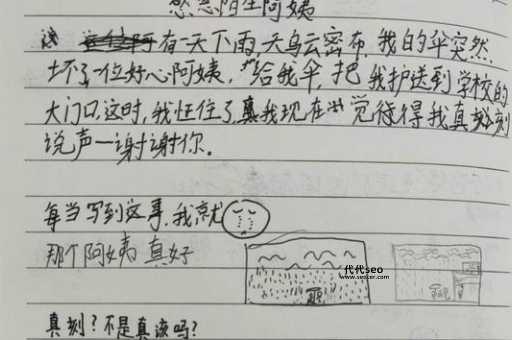 感恩陌生阿姨
有一天下雨,天乌云密布,我的伞突然
坏了一位好心阿姨,给我伞,把我护送到学校的
大门口,这时,我怔住了,真我现在觉得得我真刻
说声一谢谢你。
每当写到这事,我就
那个阿姨真好
代代seo
www.seoter.com
真刻?不是真该吗?